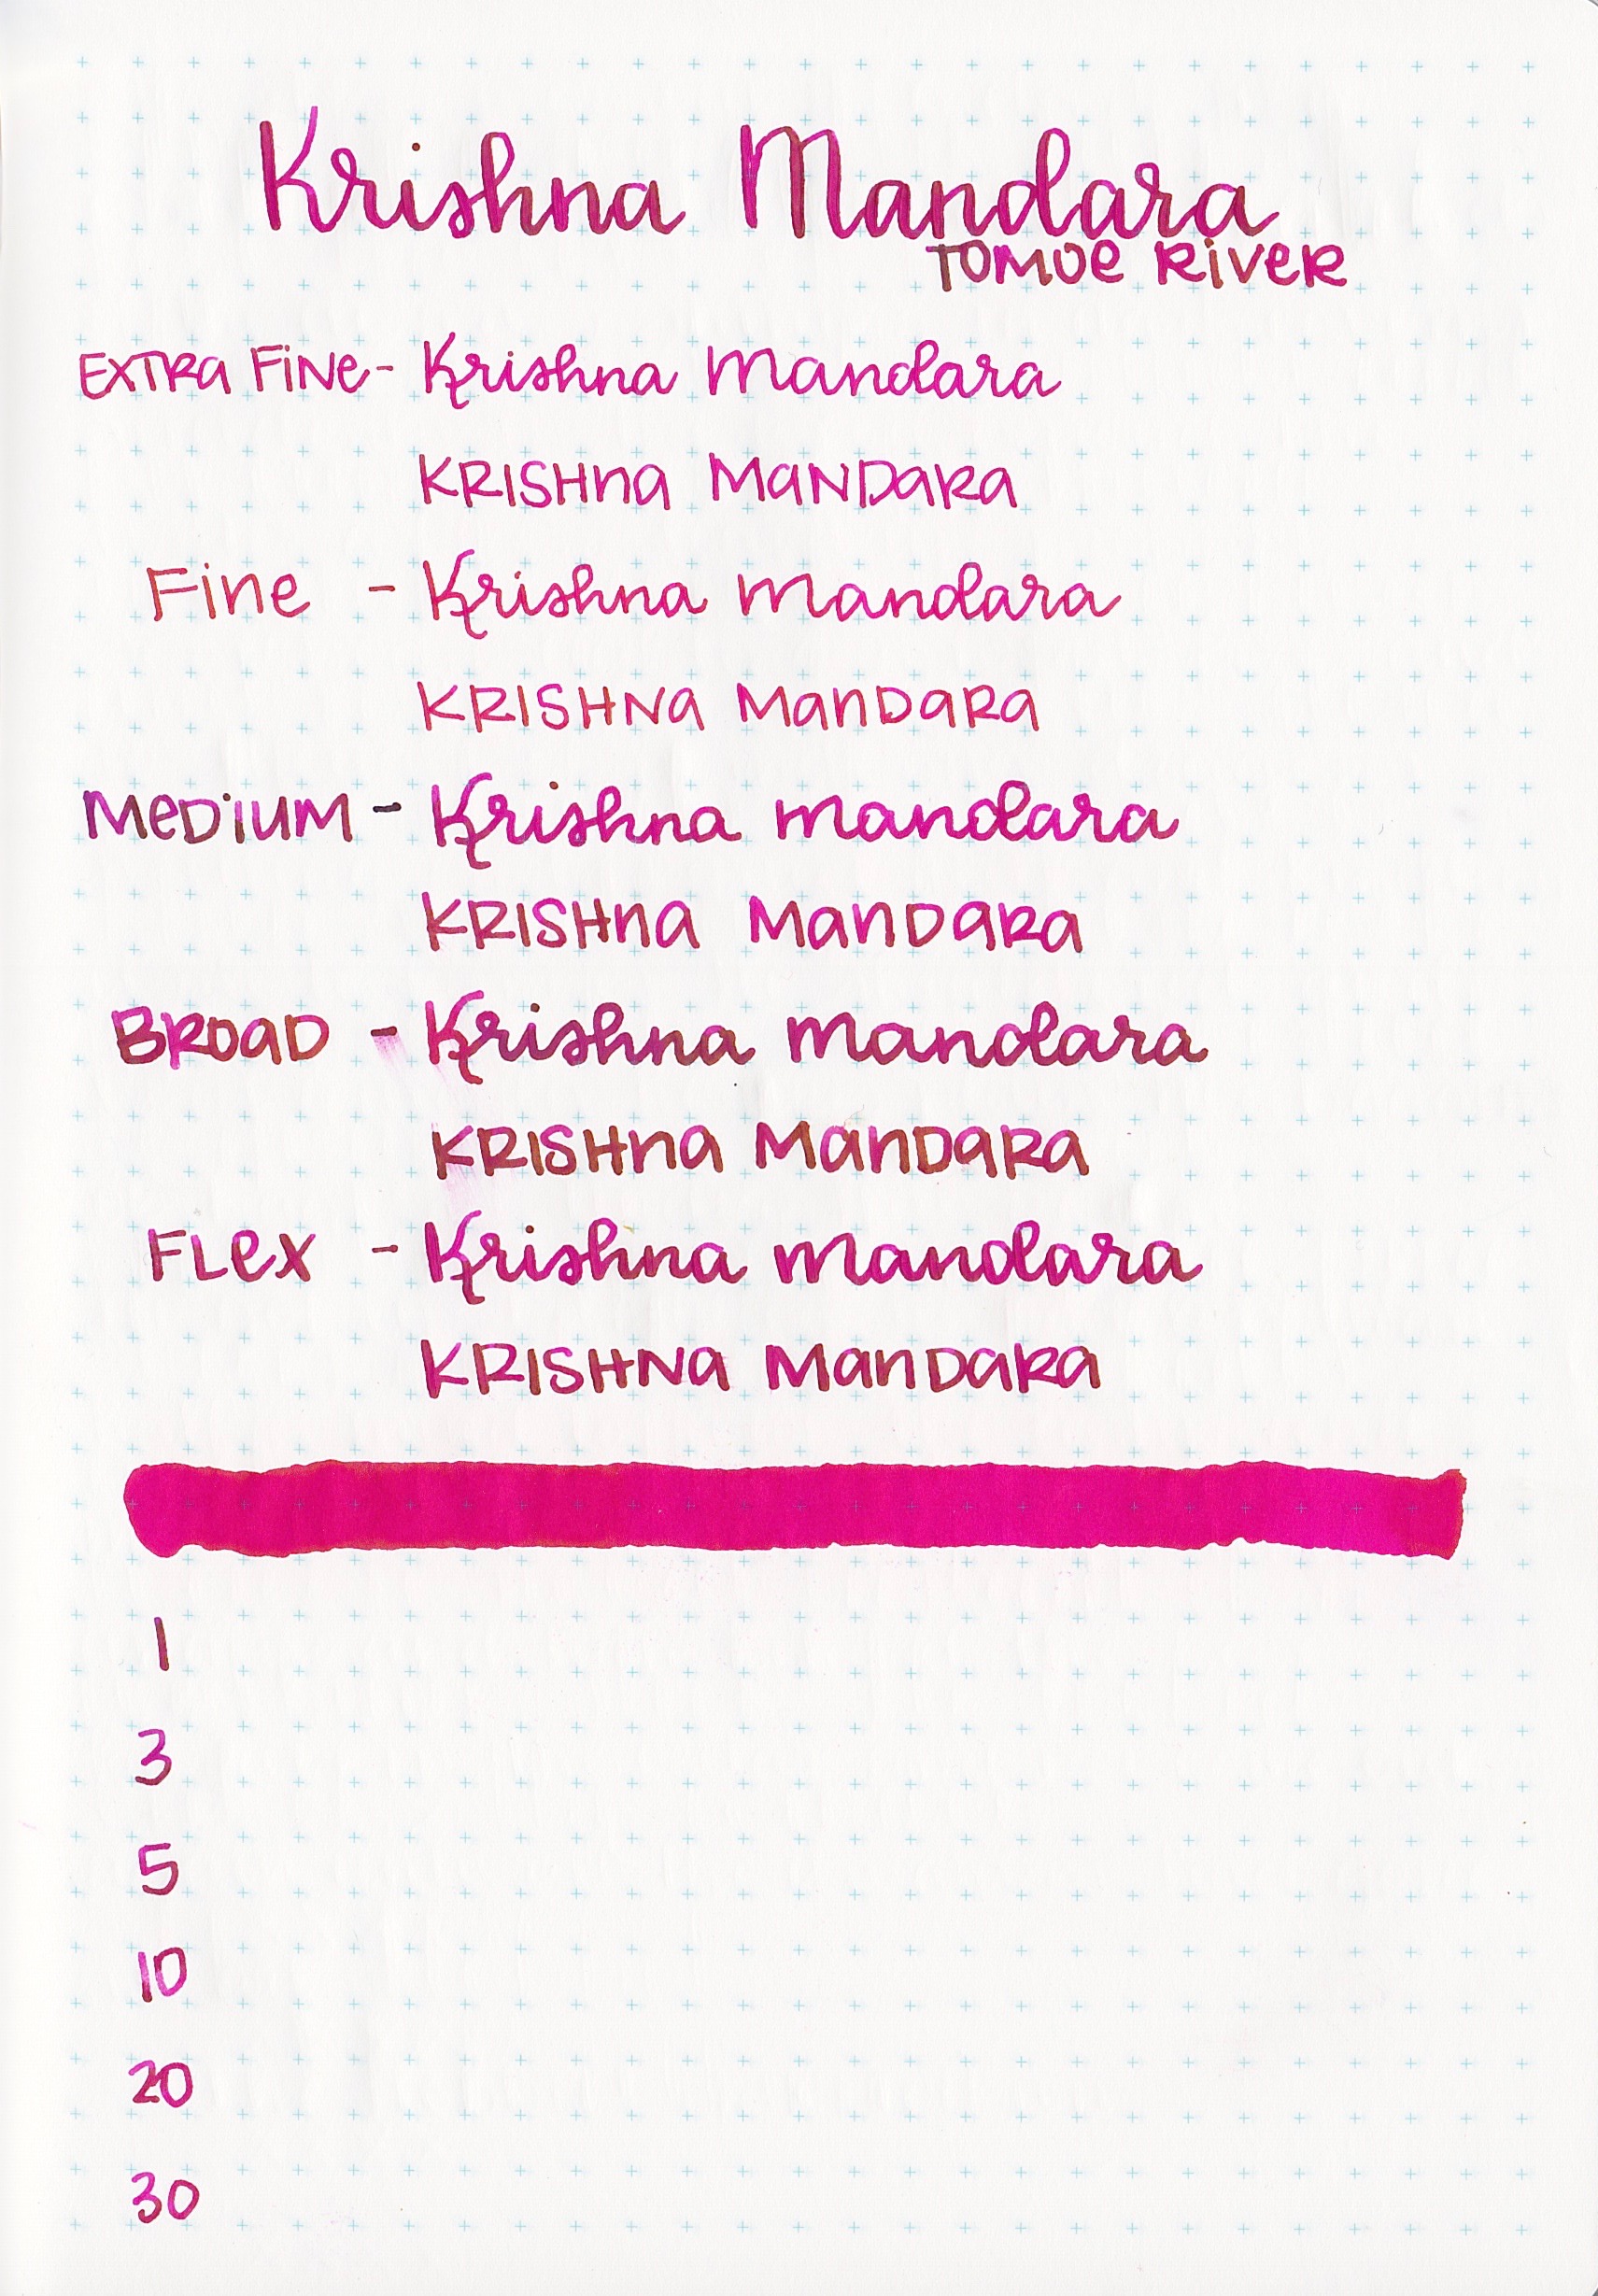 Krishna Mandara
TOMOE RiVeR
EXTRa FiNe - Krishna Mandara
KRISHna MaNDaRa
Fine - Krishna Mandara
KRISHNa ManDaRa
MeDiUM - Krishna Mandara
KRISHna ManDaRa
BROaD - Krishna Mandara
KRISHna ManDaRa
FLex - Krishna Mandara
KRISHNa ManDaRa
1
3
5
10
20
30